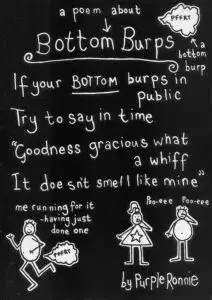 a poem about
PFFRT
Bottom Burps
a bottom burp
If your BOTTOM burps in
public
Try to say in time
"Goodness gracious what
a whiff
It doesn't smell like mine"
me running for it
-having just
done one
PFFRT
Poo-eee Poo-eee
by Purple Ronnie